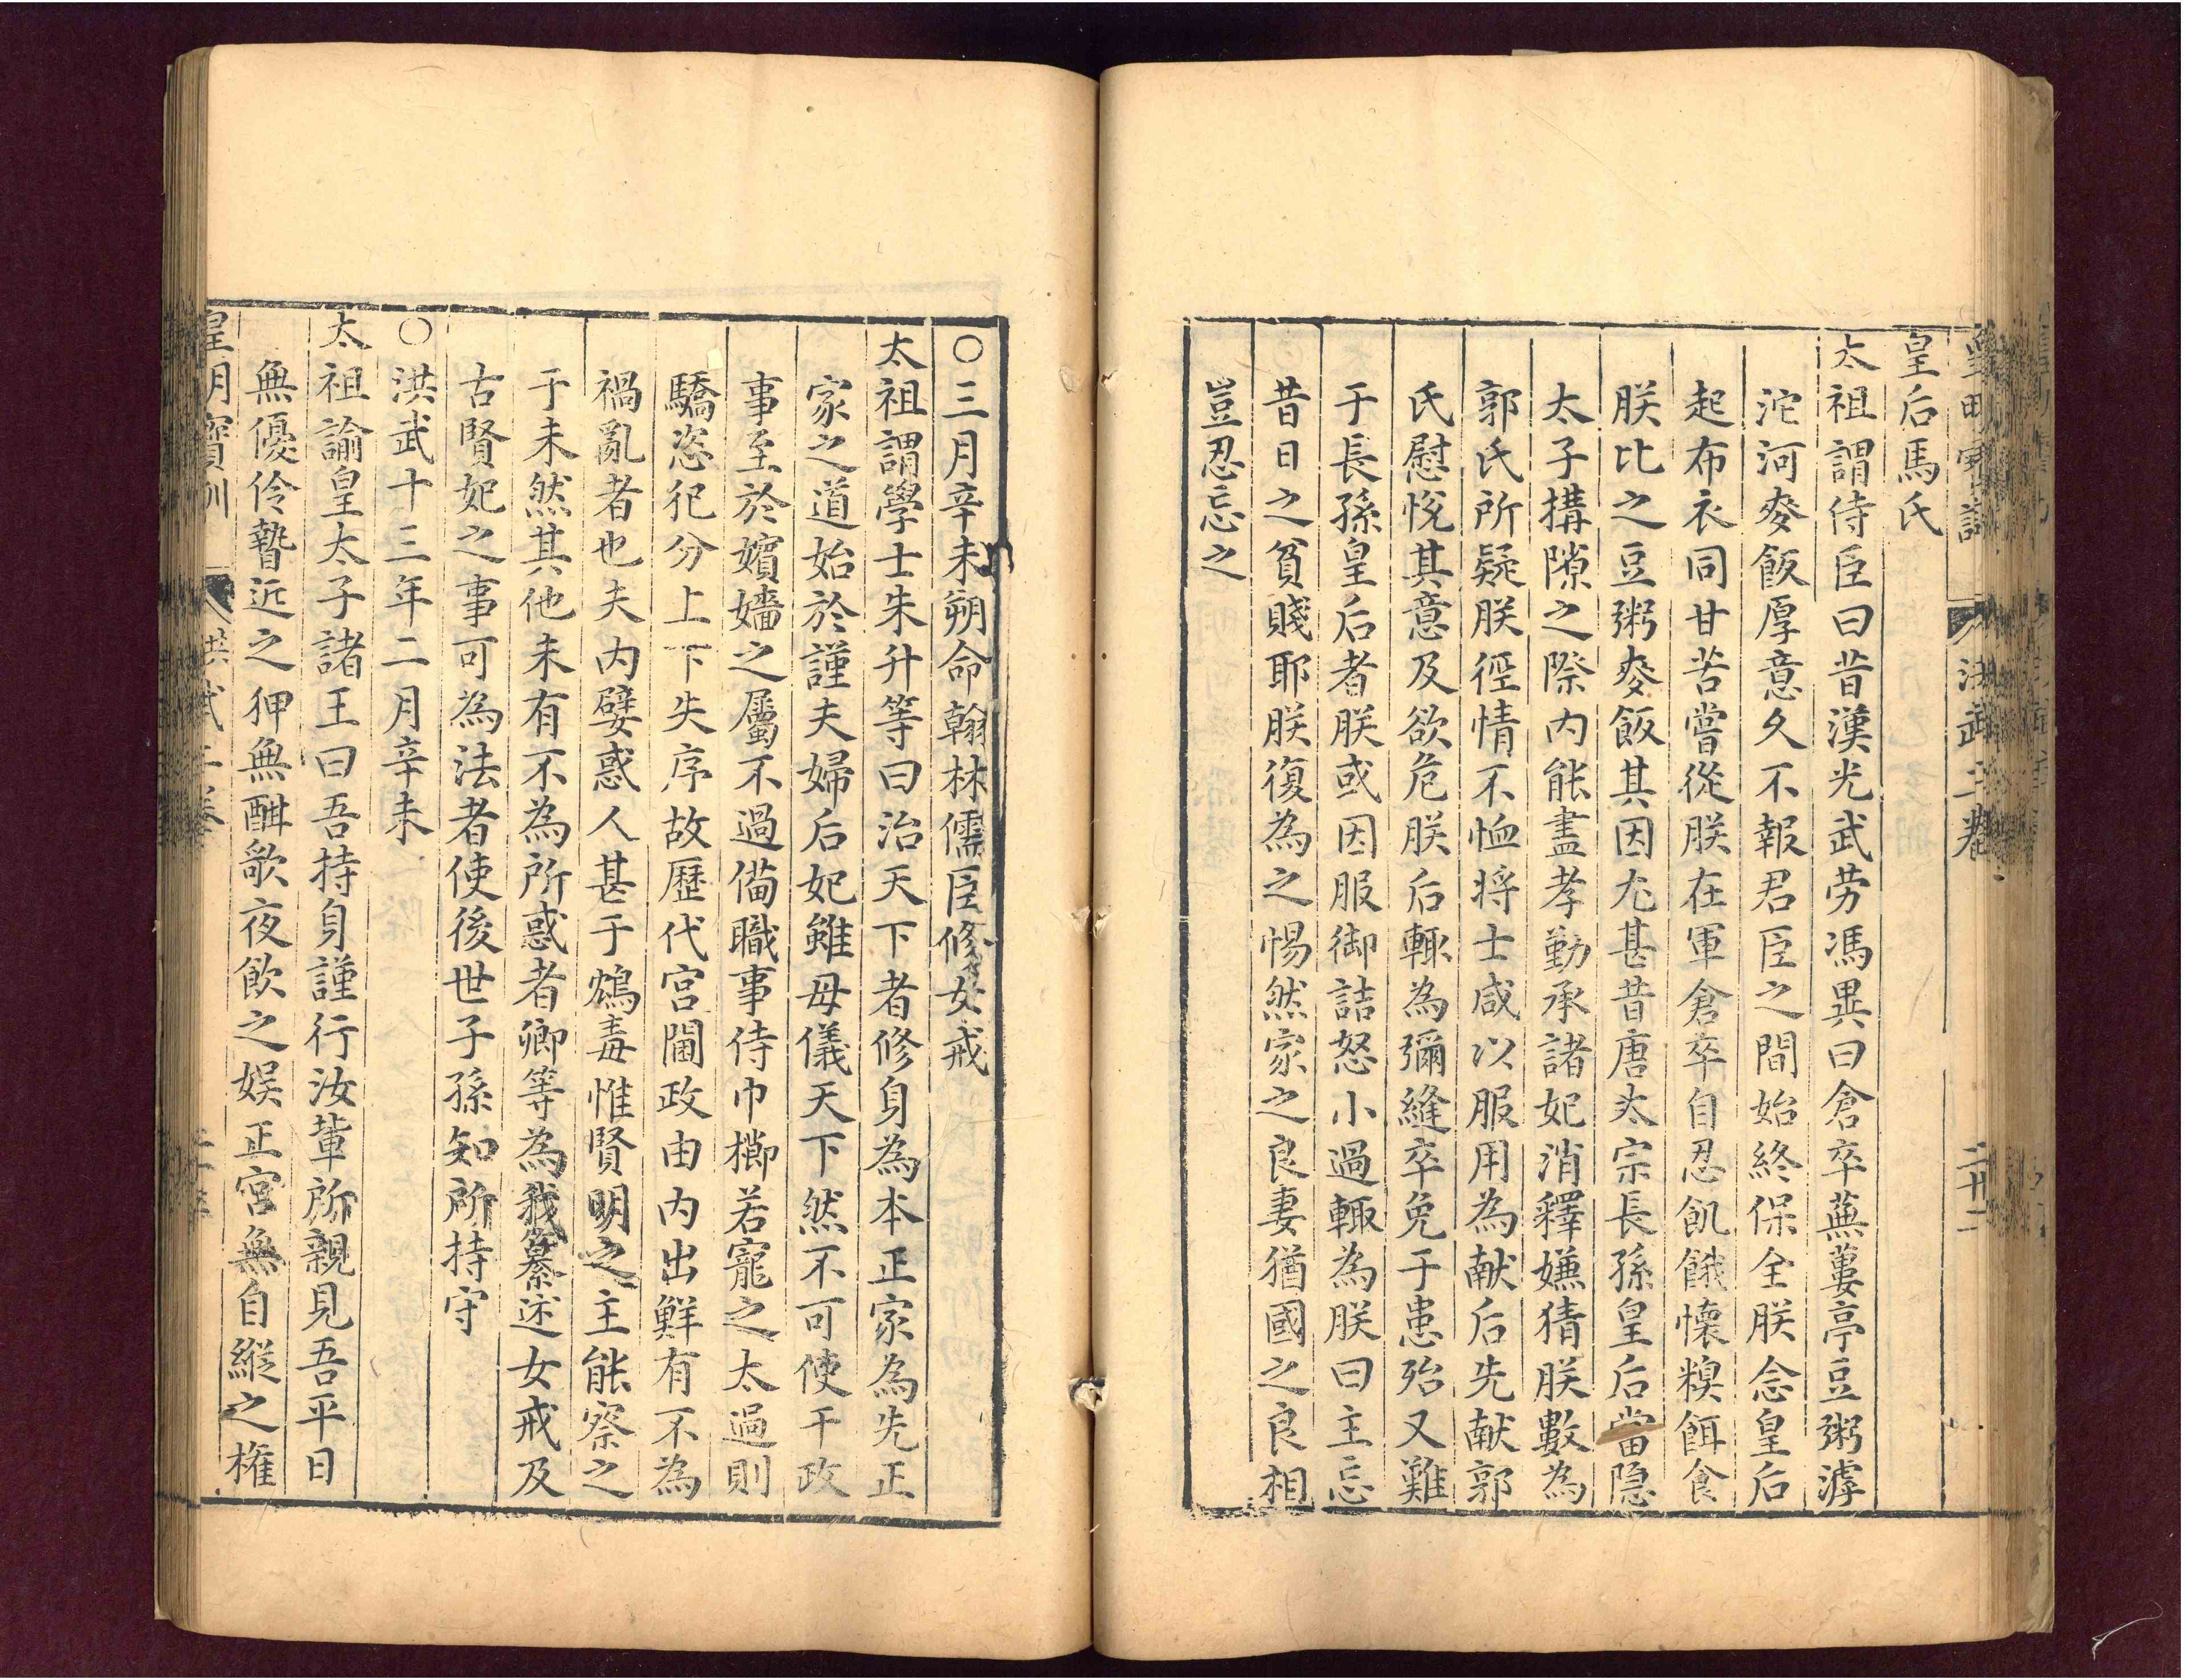 皇明寶訓 洪武二卷 二十二
皇后馬氏
太祖謂侍臣曰昔漢光武劳馮異曰倉卒蕪蔞亭豆粥滹
沱河麥飯厚意久不報君臣之間始終保全朕念皇后
起布衣同甘苦嘗從朕在軍倉卒自忍飢餓懷糗餌食
朕比之豆粥麥飯其因尤甚昔唐太宗長孫皇后當隐
太子搆隙之際内能盡孝勤承諸妃消釋嫌猜朕數為
郭氏所疑朕徑情不恤将士咸以服用為献后先献郭
氏慰悅其意及欲危朕后輒為彌縫卒免于患殆又難
于長孫皇后者朕或因服御詰怒小過輒為朕曰主忘
昔日之貧賤耶朕復為之惕然家之良妻猶國之良相
豈忍忘之
○三月辛未朔命翰林儒臣修女戒
太祖謂學士朱升等曰治天下者修身為本正家為先正
家之道始於謹夫婦后妃雖毋儀天下然不可使干政
事至於嬪嬙之屬不過備職事侍巾櫛若寵之太過則
驕恣犯分上下失序故歷代宮閫政由内出鮮有不為
禍亂者也夫内嬖惑人甚于鴆毒惟賢明之主能察之
于未然其他未有不為所惑者卿等為我纂述女戒及
古賢妃之事可為法者使後世子孫知所持守
○洪武十三年二月辛未
太祖諭皇太子諸王曰吾持身謹行汝輩所親見吾平日
無優伶暬近之狎無酣歌夜飲之娱正宮無自縱之權
皇明寶訓 洪武二卷